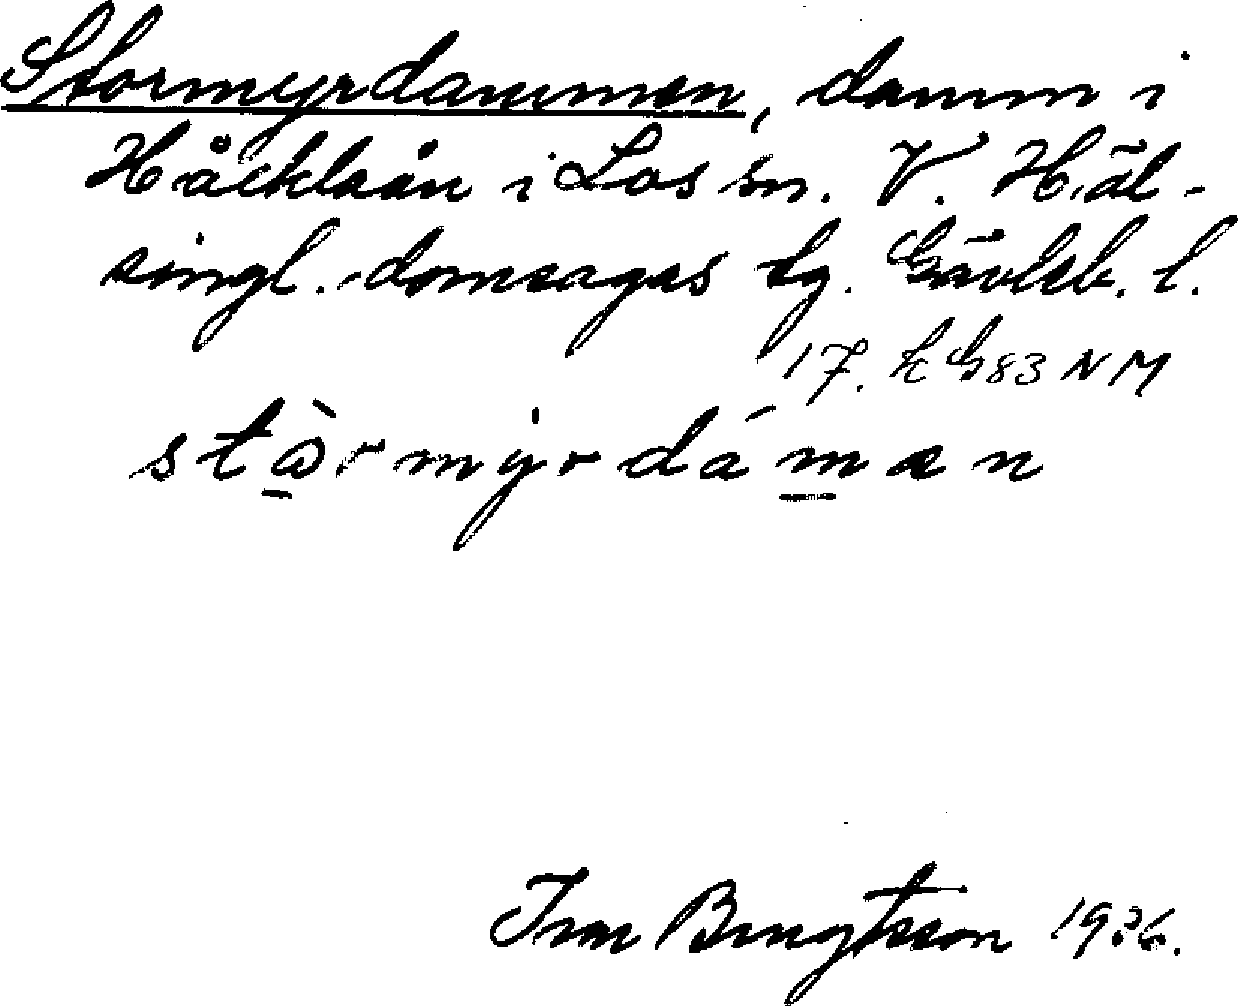 Stormyrdammen, damm i
Håcklaån i Los sn. V. Häl-
singl. domsagas tg. Gävleb. l.
17. h G83 NM
stɷ̀r myr dámen
Ivar Bengtsson 1926.